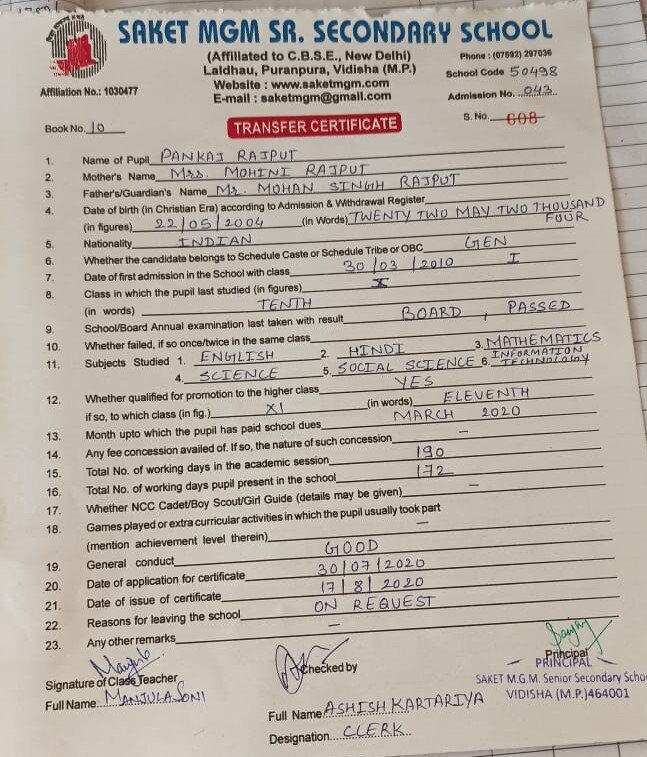 SAKET MGM SR. SECONDARY SCHOOL
(Affiliated to C.B.S.E., New Delhi)
Phone : (07592) 297036
Laldhau, Puranpura, Vidisha (M.P.)
School Code 50498
Website : www.saketmgm.com
Affiliation No.: 1030477
E-mail : saketmgm@gmail.com
Admission No. 043
Book No. 10
TRANSFER CERTIFICATE
S. No. 608
1. Name of Pupil PANKAJ RAJPUT
2. Mother's Name Mrs. MOHINI RAJPUT
3. Father's/Guardian's Name Mr. MOHAN SINGH RAJPUT
4. Date of birth (in Christian Era) according to Admission & Withdrawal Register
(in figures) 22/05/2004 (in Words) TWENTY TWO MAY TWO THOUSAND
FOUR
5. Nationality INDIAN
6. Whether the candidate belongs to Schedule Caste or Schedule Tribe or OBC GEN
7. Date of first admission in the School with class 30/03/2010 I
8. Class in which the pupil last studied (in figures) X
(in words) TENTH
9. School/Board Annual examination last taken with result BOARD, PASSED
10. Whether failed, if so once/twice in the same class
11. Subjects Studied 1. ENGLISH 2. HINDI 3. MATHEMATICS
4. SCIENCE 5. SOCIAL SCIENCE 6. INFORMATION
TECHNOLOGY
12. Whether qualified for promotion to the higher class YES
if so, to which class (in fig.) XI (in words) ELEVENTH
13. Month upto which the pupil has paid school dues MARCH 2020
14. Any fee concession availed of. If so, the nature of such concession –
15. Total No. of working days in the academic session 190
16. Total No. of working days pupil present in the school 172
17. Whether NCC Cadet/Boy Scout/Girl Guide (details may be given) –
18. Games played or extra curricular activities in which the pupil usually took part
(mention achievement level therein) –
19. General conduct GOOD
20. Date of application for certificate 30/07/2020
21. Date of issue of certificate 17/8/2020
22. Reasons for leaving the school ON REQUEST
23. Any other remarks –
Signature of Class Teacher
Checked by
Principal
PRINCIPAL
SAKET M.G.M. Senior Secondary Schoo
VIDISHA (M.P.)464001
Full Name MANJULA SONI
Full Name ASHISH KARTARIYA
Designation CLERK